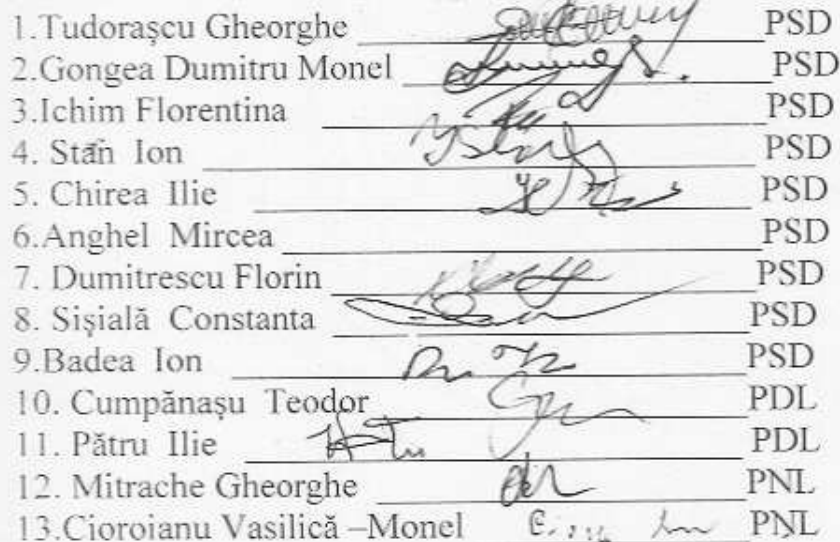 1.Tudorașcu Gheorghe PSD
2.Gongea Dumitru Monel PSD
3.Ichim Florentina PSD
4. Stan Ion PSD
5. Chirea Ilie PSD
6.Anghel Mircea PSD
7. Dumitrescu Florin PSD
8. Sișială Constanta PSD
9.Badea Ion PSD
10. Cumpănașu Teodor PDL
11. Pătru Ilie PDL
12. Mitrache Gheorghe PNL
13.Cioroianu Vasilică –Monel PNL